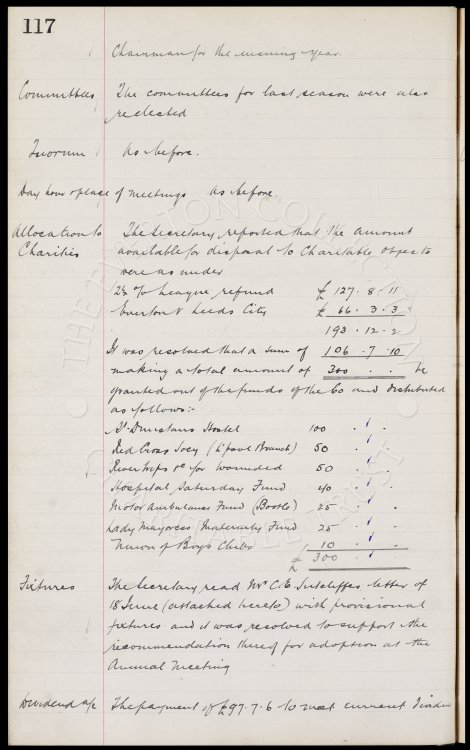 117
Chairman for the ensuing year.
Committees The committees for last season were also
reelected
Quorum As before.
Day hour & place of meetings As before.
Allocation to The Secretary reported that the amount
Charities available for disposal to Charitable objects
were as under
2½ % League refund £ 127 . 8 . 11
Everton v Leeds City £ 66 . 3 . 3
193 . 12 . 2
It was resolved that a sum of 106 . 7 . 10
making a total amount of 300 . . be
granted out of the funds of the Co and distributed
as follows:-
St Dunstans Hostel 100 . .
Red Cross Socy (L'pool Branch) 50 . .
River trips &c for wounded 50 . .
Hospital Saturday Fund 40 . .
Motor Ambulance Fund (Bootle) 25 . .
Lady Mayoress Maternity Fund 25 . .
Union of Boys Clubs 10 . .
£ 300 . .
Fixtures The Secretary read Mr C.E. Sutcliffes letter of
18 June (attached hereto) with provisional
fixtures and it was resolved to support the
recommendation thereof for adoption at the
Annual Meeting
Dividend a/c The payment of £97.7.6 to meet current Dividen
THE EVERTON COLLECTION
CHARITABLE TRUST